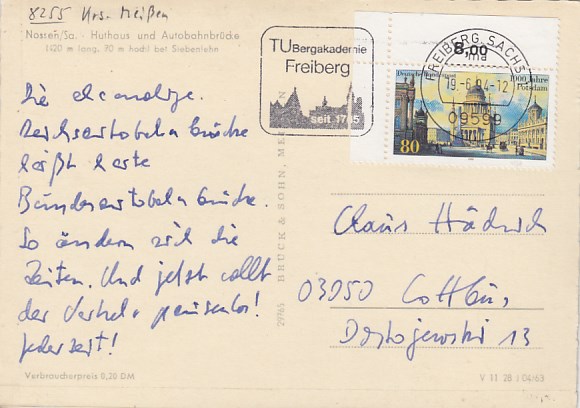 8255 Krs. Meißen
Nossen/Sa. · Huthaus und Autobahnbrücke
1120 m lang, 70 m hoch bei Siebenlehn
Die ehemalige
Reichsautobahnbrücke
heißt heute
Bundesautobahnbrücke.
So ändern sich die
Zeiten. Und jetzt rollt
der Verkehr pausenlos!
jederzeit!
Verbraucherpreis 0,20 DM
29765 BRÜCK & SOHN, MEISSEN
TU Bergakademie
Freiberg
seit 1765
8,00
FREIBERG, SACHS
19.-6.94-12
09599
ma
Deutsche Bundespost
1000 Jahre
Potsdam
80
Claus Hädrich
03050 Cottbus
Dostojewski 13
V 11 28 | 04/63